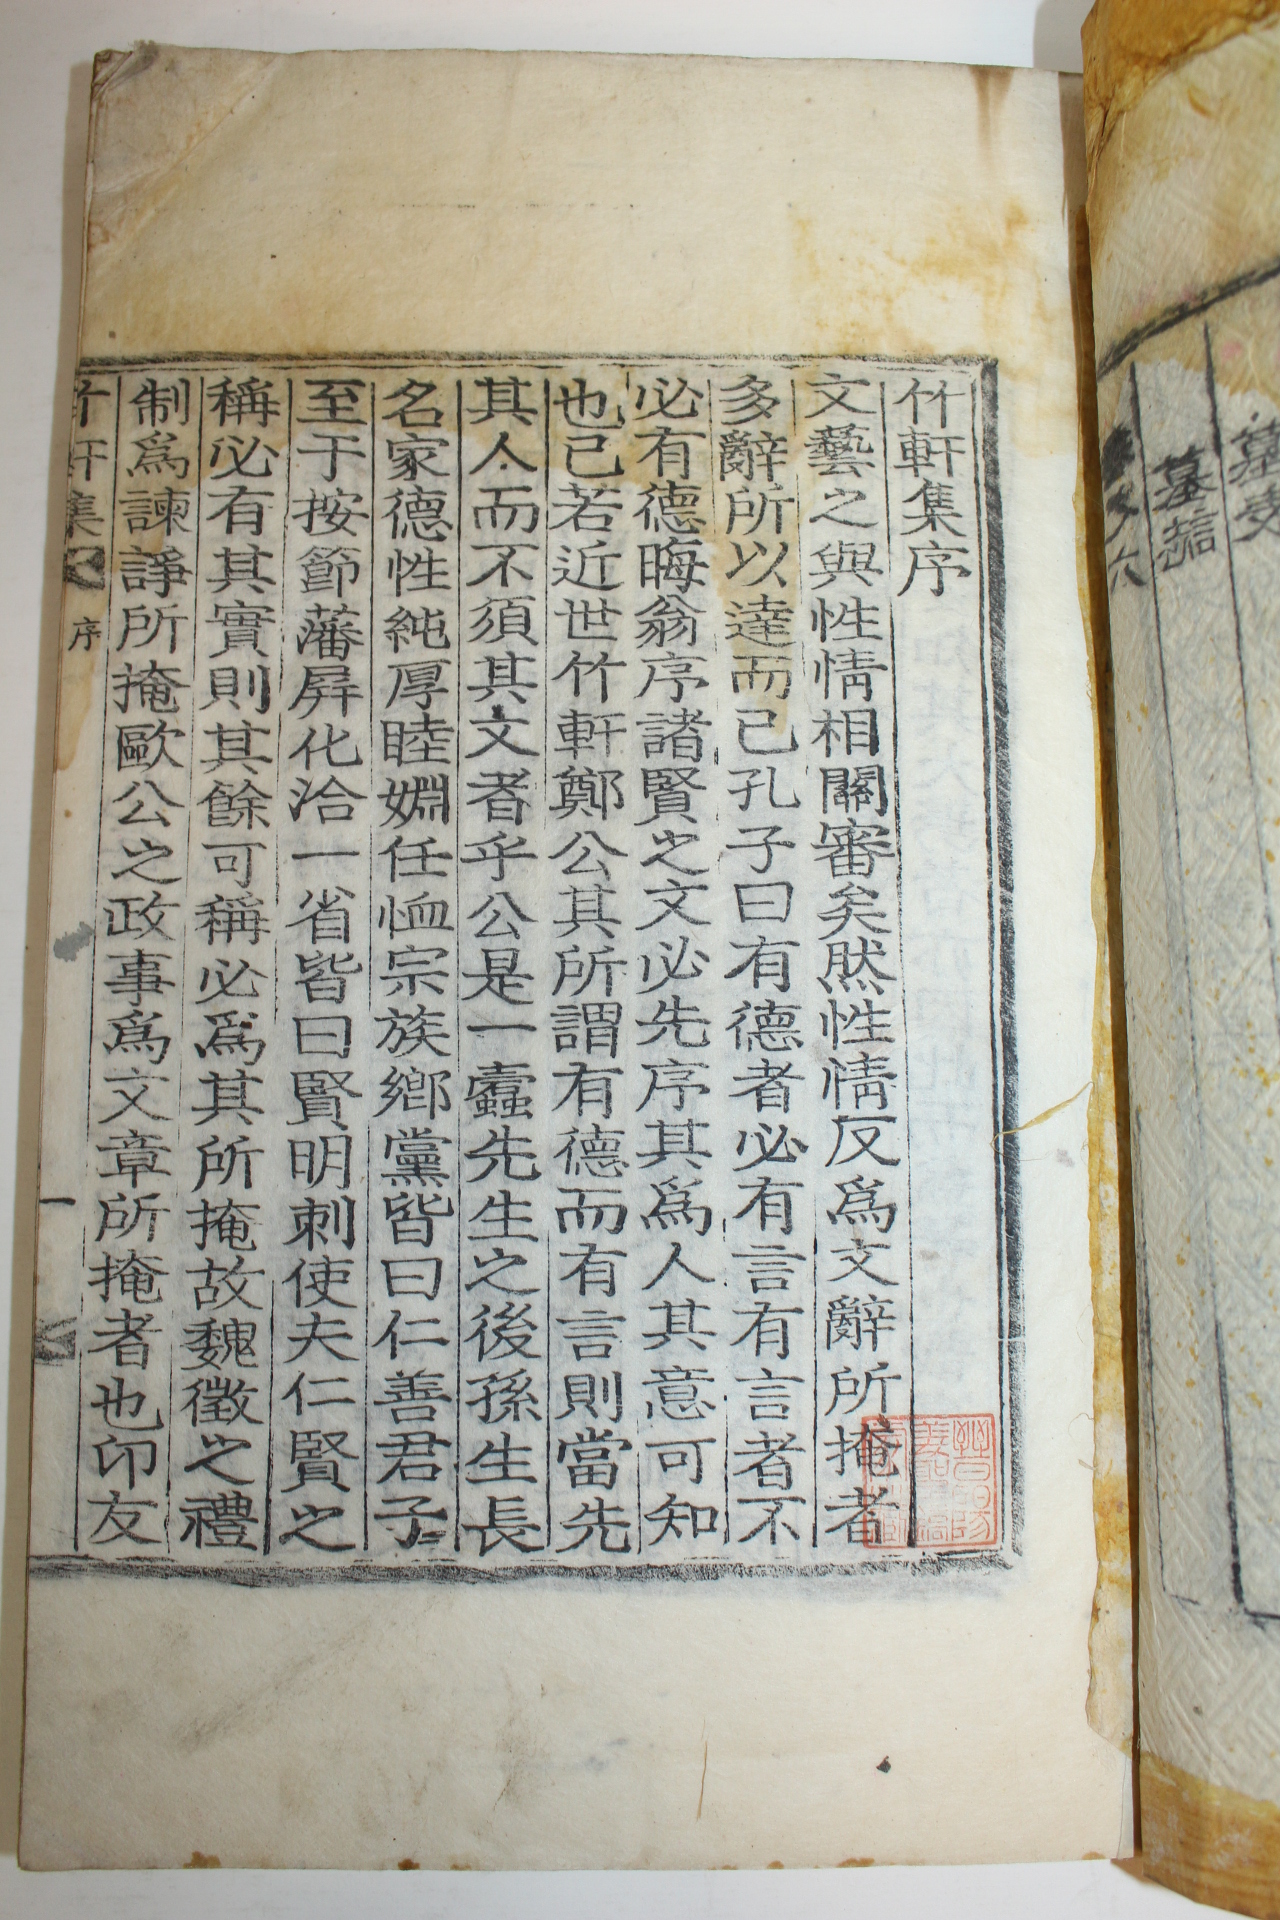 竹軒集序
文藝之與性情相關審矣然性情反爲文辭所掩者
多辭所以達而已孔子曰有德者必有言有言者不
必有德晦翁序諸賢之文必先序其爲人其意可知
也已若近世竹軒鄭公其所謂有德而有言則當先
其人而不須其文者乎公是一蠧先生之後孫生長
名家德性純厚睦婣任恤宗族鄉黨皆曰仁善君子
至于按節藩屛化洽一省皆曰賢明刺使夫仁賢之
稱必有其實則其餘可稱必爲其所掩故魏徵之禮
制爲諫諍所掩歐公之政事爲文章所掩者也卬友
竹軒集 序 一
墓表
墓誌
六